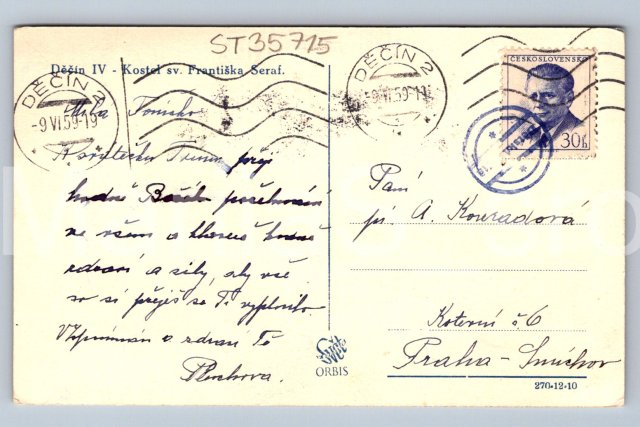 ST35715
Děčín IV - Kostel sv. Františka Seraf.
DĚČÍN 2
-9.VI.59-19
DĚČÍN 2
-9.VI.59-19
ČESKOSLOVENSKO
30h
Milá
K svátečku Ti přeji
hodně Božích požehnání
ve všem a hlavně hodně
zdraví a síly, aby vše
so si přeješ se Ti vyplnilo.
Vzpomínám a zdraví Tě
Paní
pí. A. Konradová
Koterní č. 6
Praha - Smíchov
ORBIS
270-12-10